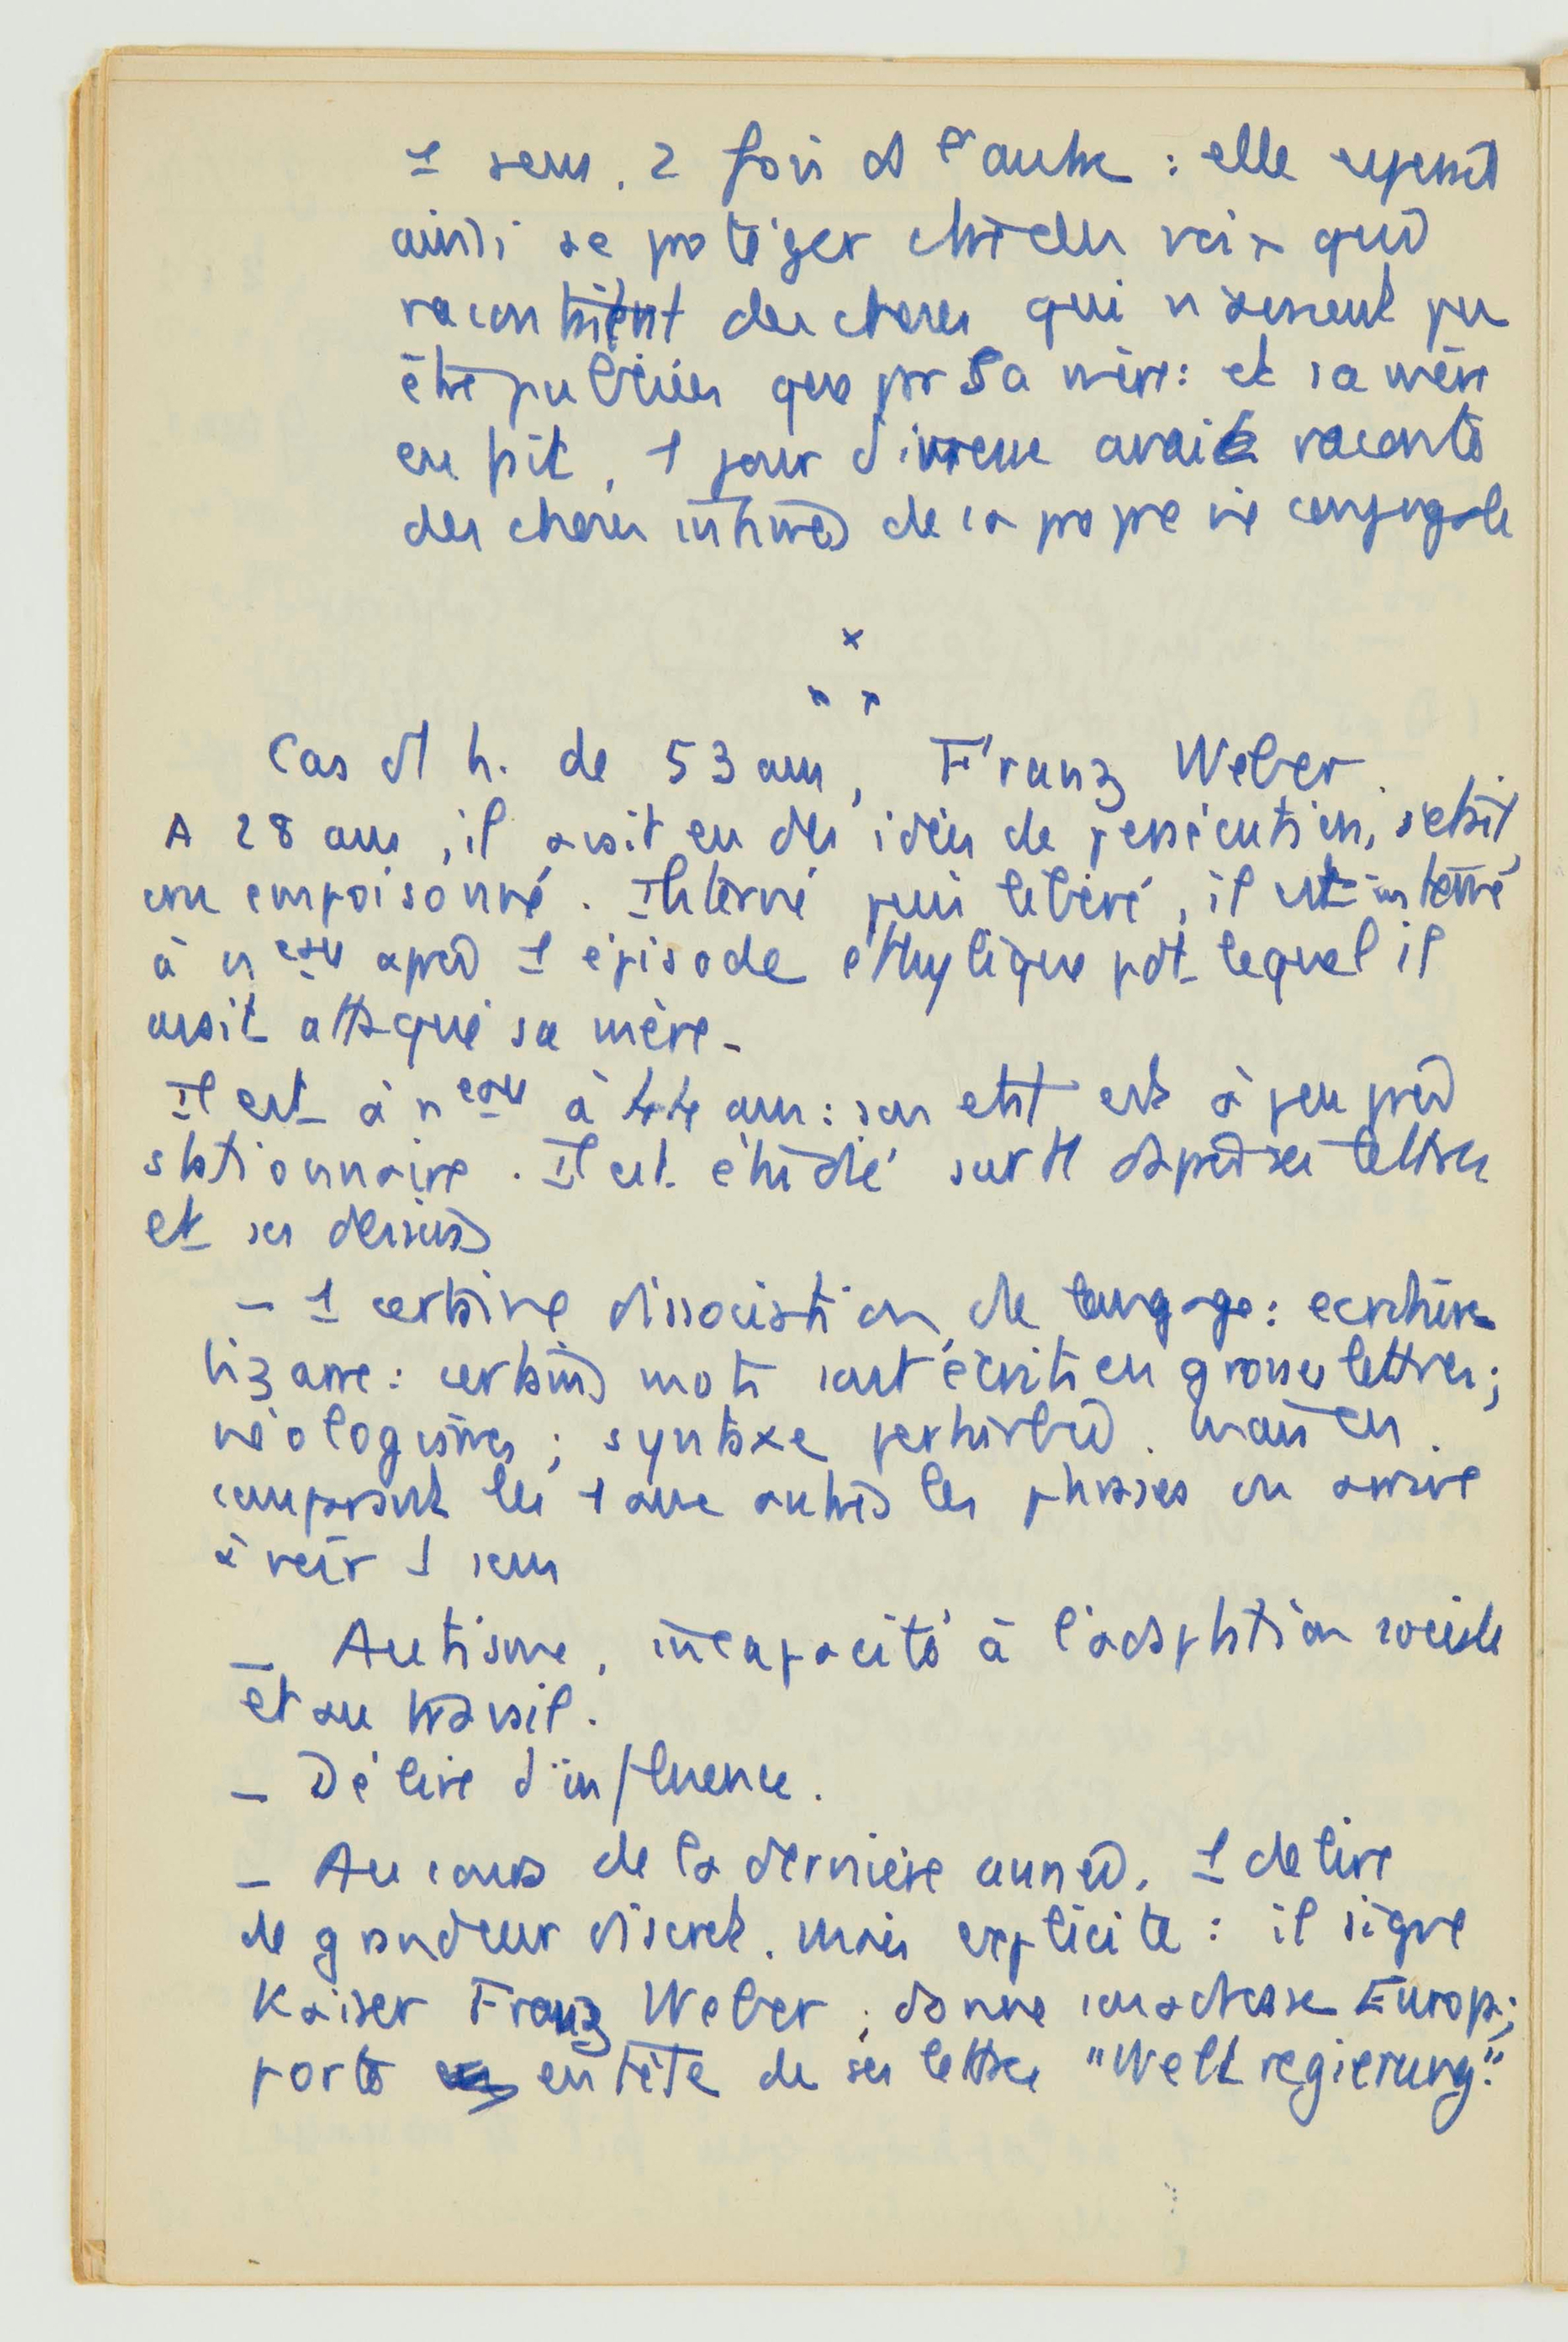 1 sens, 2 fois ds l'autre : elle
ainsi se protéger ctre des voix qui
racontaient des choses qui n'avaient pu
être publiées que par sa mère : et sa mère
en fait, 1 jour d'ivresse avait raconté
des choses intimes de sa propre vie conjugale
x
x x
Cas d'1 h. de 53 ans, Franz Weber.
A 28 ans, il avait eu des idées de persécution, s'était
cru empoisonné. Interné puis libéré, il est interné
à nveau après 1 épisode éthylique pdt lequel il
avait attaqué sa mère -
Il est à nveau à 44 ans : son état est à peu près
stationnaire. Il est étudié surtt d'après ses lettres
et ses dessins
- 1 certaine dissociation de langage : écriture
bizarre : certains mots sont écrits en grosses lettres ;
néologismes ; syntaxe perturbée. Mais en
comparant les 1 aux autres les phrases on arrive
à voir 1 sens
- Autisme, incapacité à l'adaptation sociale
et au travail.
- Délire d'influence.
- Au cours de la dernière année, 1 délire
de grandeur discret, mais explicite : il signe
Kaiser Franz Weber ; donne son adresse Europ ;
porte en tête de ses lettres "Weltregierung".